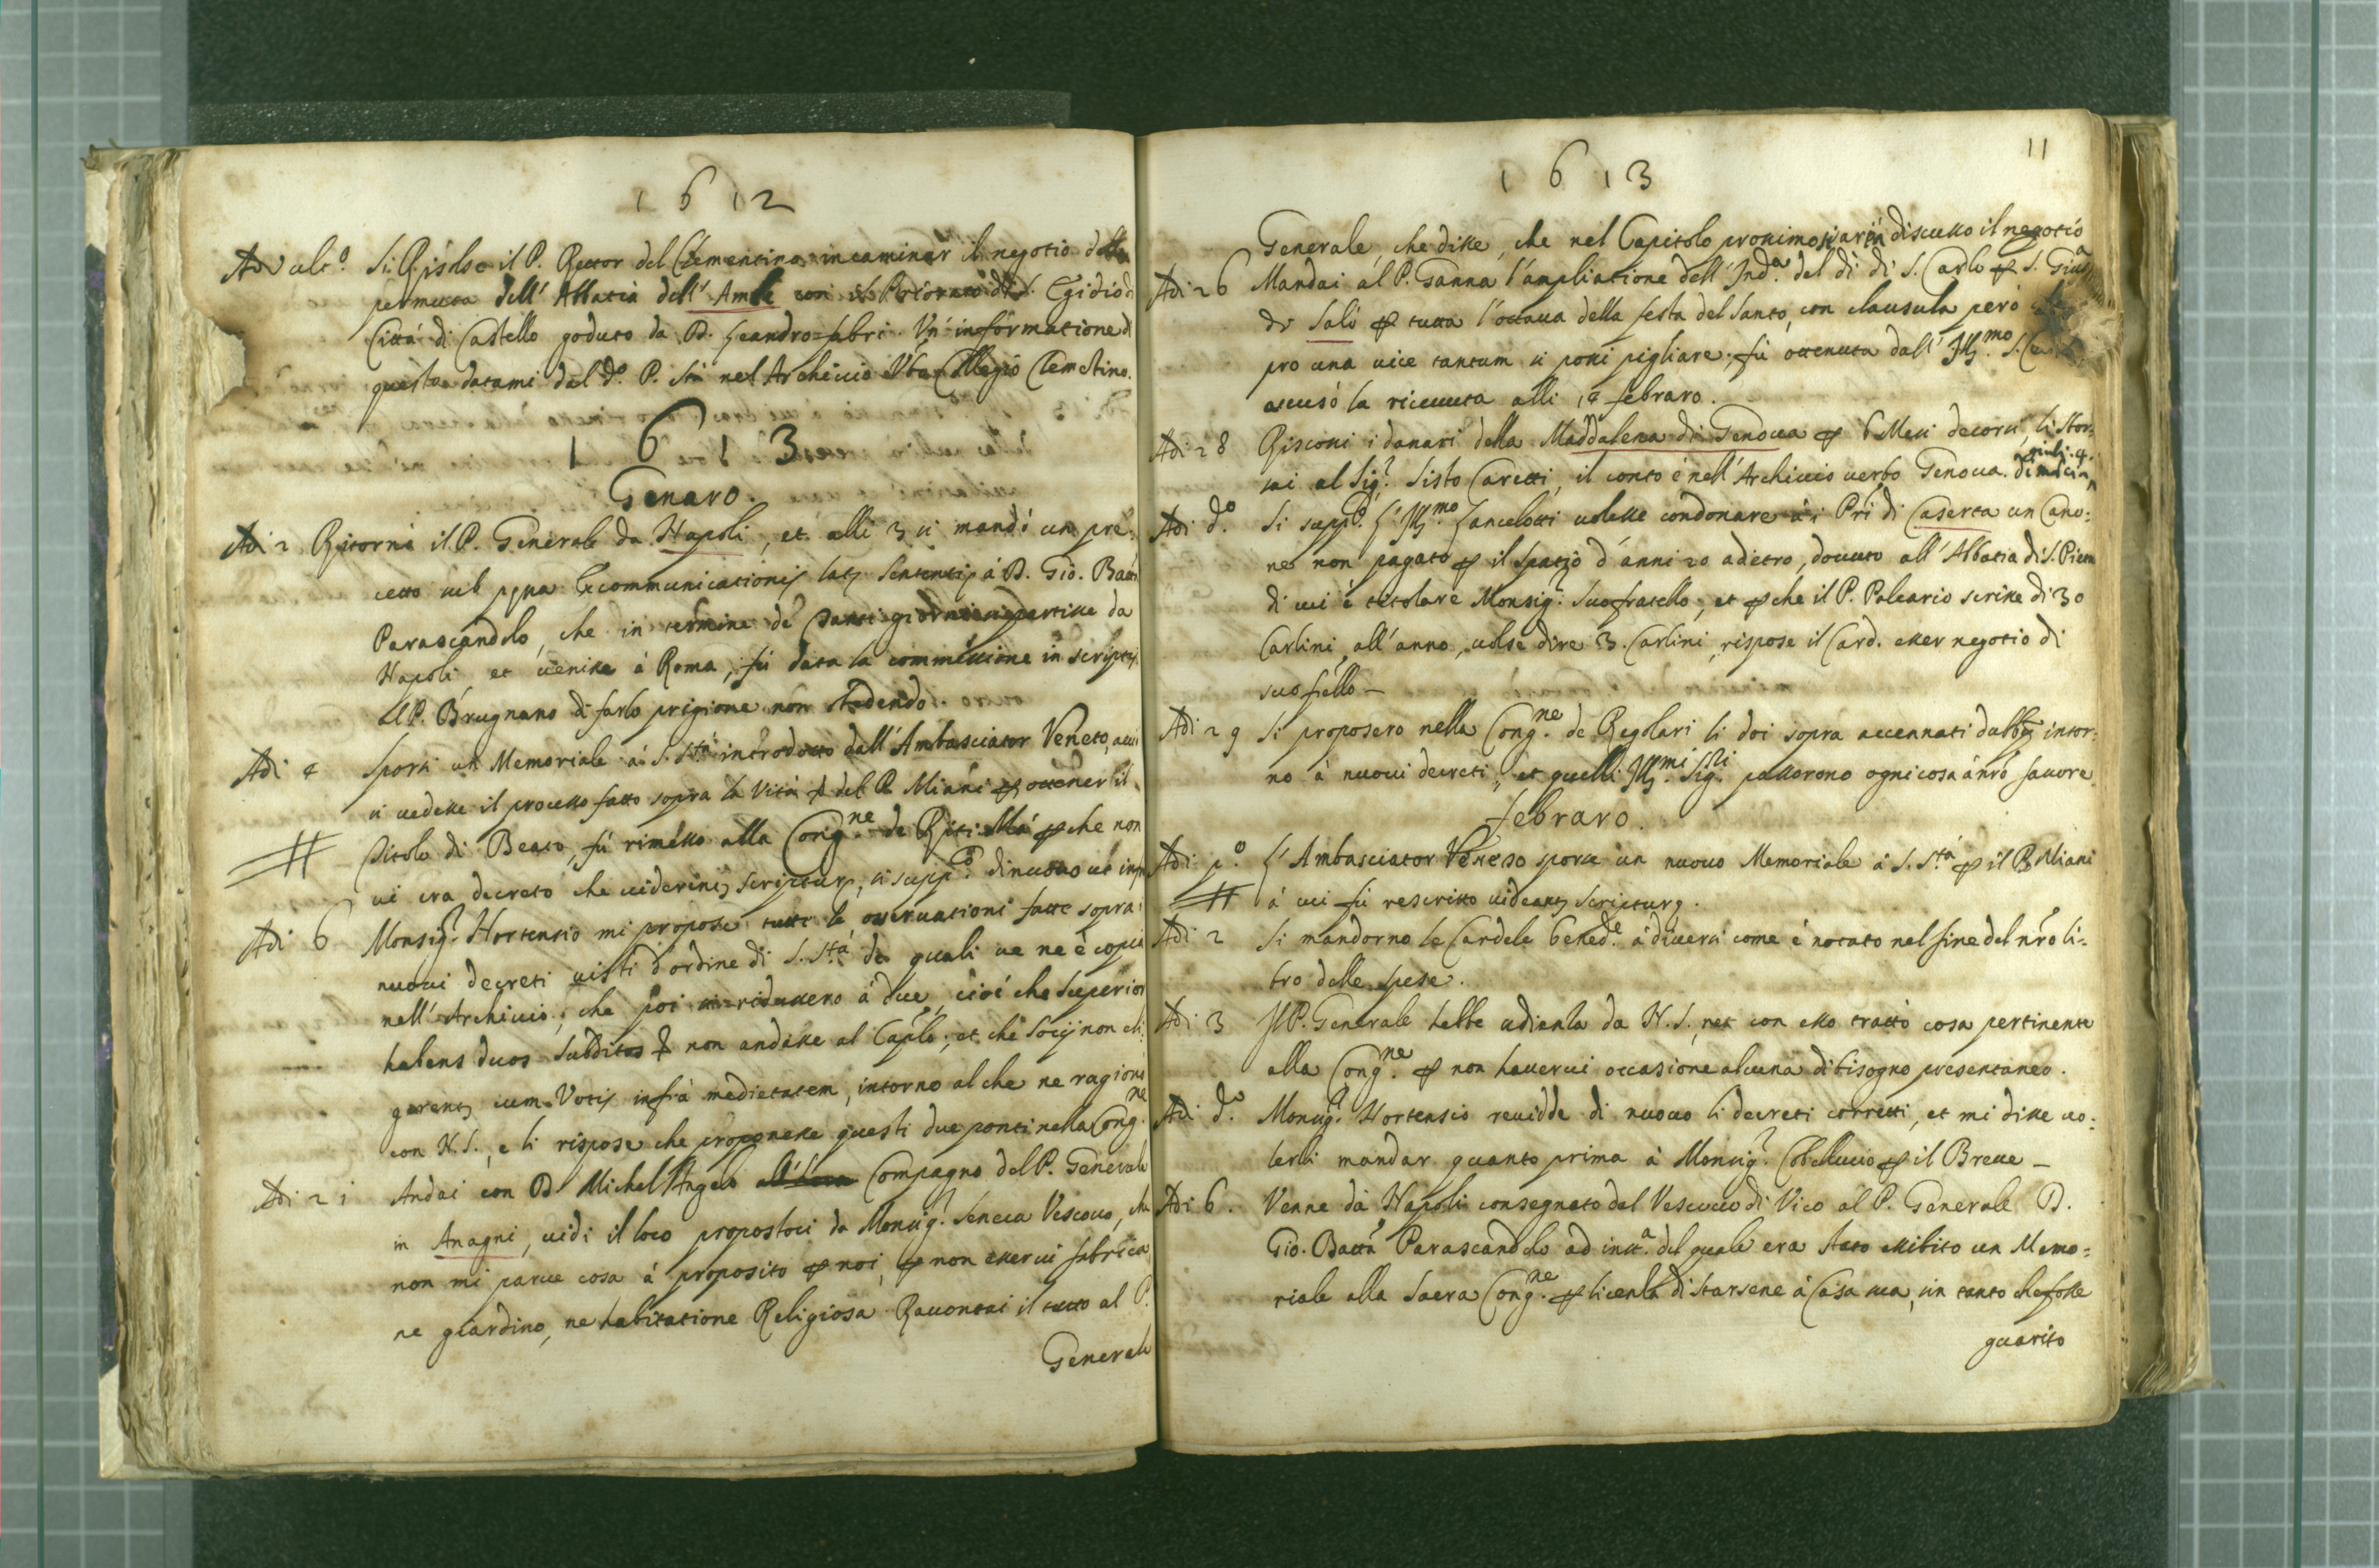 1612
Adi ult.o Si Risolse il P. Rettor del Clementino incaminar il negotio della
permuta dell' Abbatia dell' con il Priorato di S. Egidio di
Città di Castello goduto da D. Leandro fabri. Un' informatione di
questo datami dal d.o P. sta nel Archivio V.o Collegio Clemetino.
1613
Genaro.
Adi 2 Ritornò il P. Generale da Napoli, et alli 3 si mandò un pre:
cetto sub pęna Excommunicationis latę sententię à D. Gio. Batt.
Parascandolo, che in termine de tanti giorni si partisse da
Napoli et venisse à Roma, fù data la commissione in scriptis
al P. Brugnano di farlo prigione non obedendo.
Adi 4 Sporsi un Memoriale à S. S.tà introdotto dall' Ambasciator Veneto, acciò
si vedesse il processo fatto sopra la Vita del P. Miani ꝑ ottener il
titolo di Beato, fù rimesso alla Cong.ne de Riti Mà ꝑche non
vi era decreto che viderint scripturę, si supp.o di nuovo ut inf.
Adi 6 Monsig.r Hortensio mi propose tutte le osservationi fatte sopra i
nuovi decreti visti d'ordine di S. S.tà de quali ve ne è copia
nell' Archivio, che poi si ridussero à due, cioè che Superior
habens duos subditos non andasse al Cap.lo, et che socij non eli:
gerent cum Votis infrà medietatem, intorno al che ne ragionò
con N. S., e li rispose che proponesse questi due ponti nella Cong.ne
Adi 21 Andai con D. Michel'Angelo Compagno del P. Generale
in Anagni, vidi il loco propostoci da Monsig.r Seneca Vescovo, che
non mi parve cosa à proposito ꝑ noi, ꝑ non esservi fabrica,
ne giardino, ne habitatione Religiosa. Raccontai il tutto al P.
Generale
11
1613
Generale, che disse, che nel Capitolo prossimo si saria discusso il negotio
Adi 26 Mandai al P. Ganna l'ampliatione dell' Ind.a del dì di S. Carlo ꝑ S. Gius.a
di Salò ꝑ tutta l'ottava della festa del Santo, con clausula però che
pro una vice tantum si possi pigliare, fù ottenuta dall' Ill.mo S.
accusò la ricevuta alli 14 febraro.
Adi 28 Riscossi i danari della Maddalena di Genova ꝑ 6 Mesi decorsi, li sbor:
sai al Sig.r Sisto Caretti, il conto è nell' Archivio verbo Genova.
Adi d.o Si supp.o l' Ill.mo Lancelotti volesse condonare à i Pri di Caserta un Cano:
ne non pagato ꝑ il spatio d'anni 20 adietro, dovuto all' Abbatia di S. Pietro
di cui è titolare Monsig.r suo fratello, et ꝑche il P. Paleario scrisse di 30
Carlini all' anno, volse dire 3. Carlini, rispose il Card. esser negotio di
suo fr̃ello —
Adi 29 Si proposero nella Cong.ne de Regolari li doi sopra accennati dubbij intor:
no à nuovi decreti, et quelli Ill.mi Sig.ri passorono ogni cosa à nr̃o favore
febraro.
Adi p.o L' Ambasciator Veneto sporse un nuovo Memoriale à S. S.tà ꝑ il P. Miani
à cui fù rescritto videantur scripturę.
Adi 2 Si mandorno le Candele bened.e à diversi come è notato nel fine del nr̃o li:
bro delle spese.
Adi 3 Il P. Generale hebbe udienza da N. S., ne con esso trattò cosa pertinente
alla Cong.ne ꝑ non havervi occasione alcuna di bisogno presentaneo.
Adi d.o Monsig.r Hortensio revidde di nuovo li decreti corretti, et mi disse vo:
lerli mandar quanto prima à Monsig.r Cobellucio ꝑ il Breve —
Adi 6. Venne da Napoli consegnato dal Vescovo di Vico al P. Generale D.
Gio. Batta Parascandolo ad inst.a del quale era stato essibito un Memo:
riale alla Sacra Cong.ne ꝑ licenza di starsene à Casa sua, sin tanto che fosse
guarito